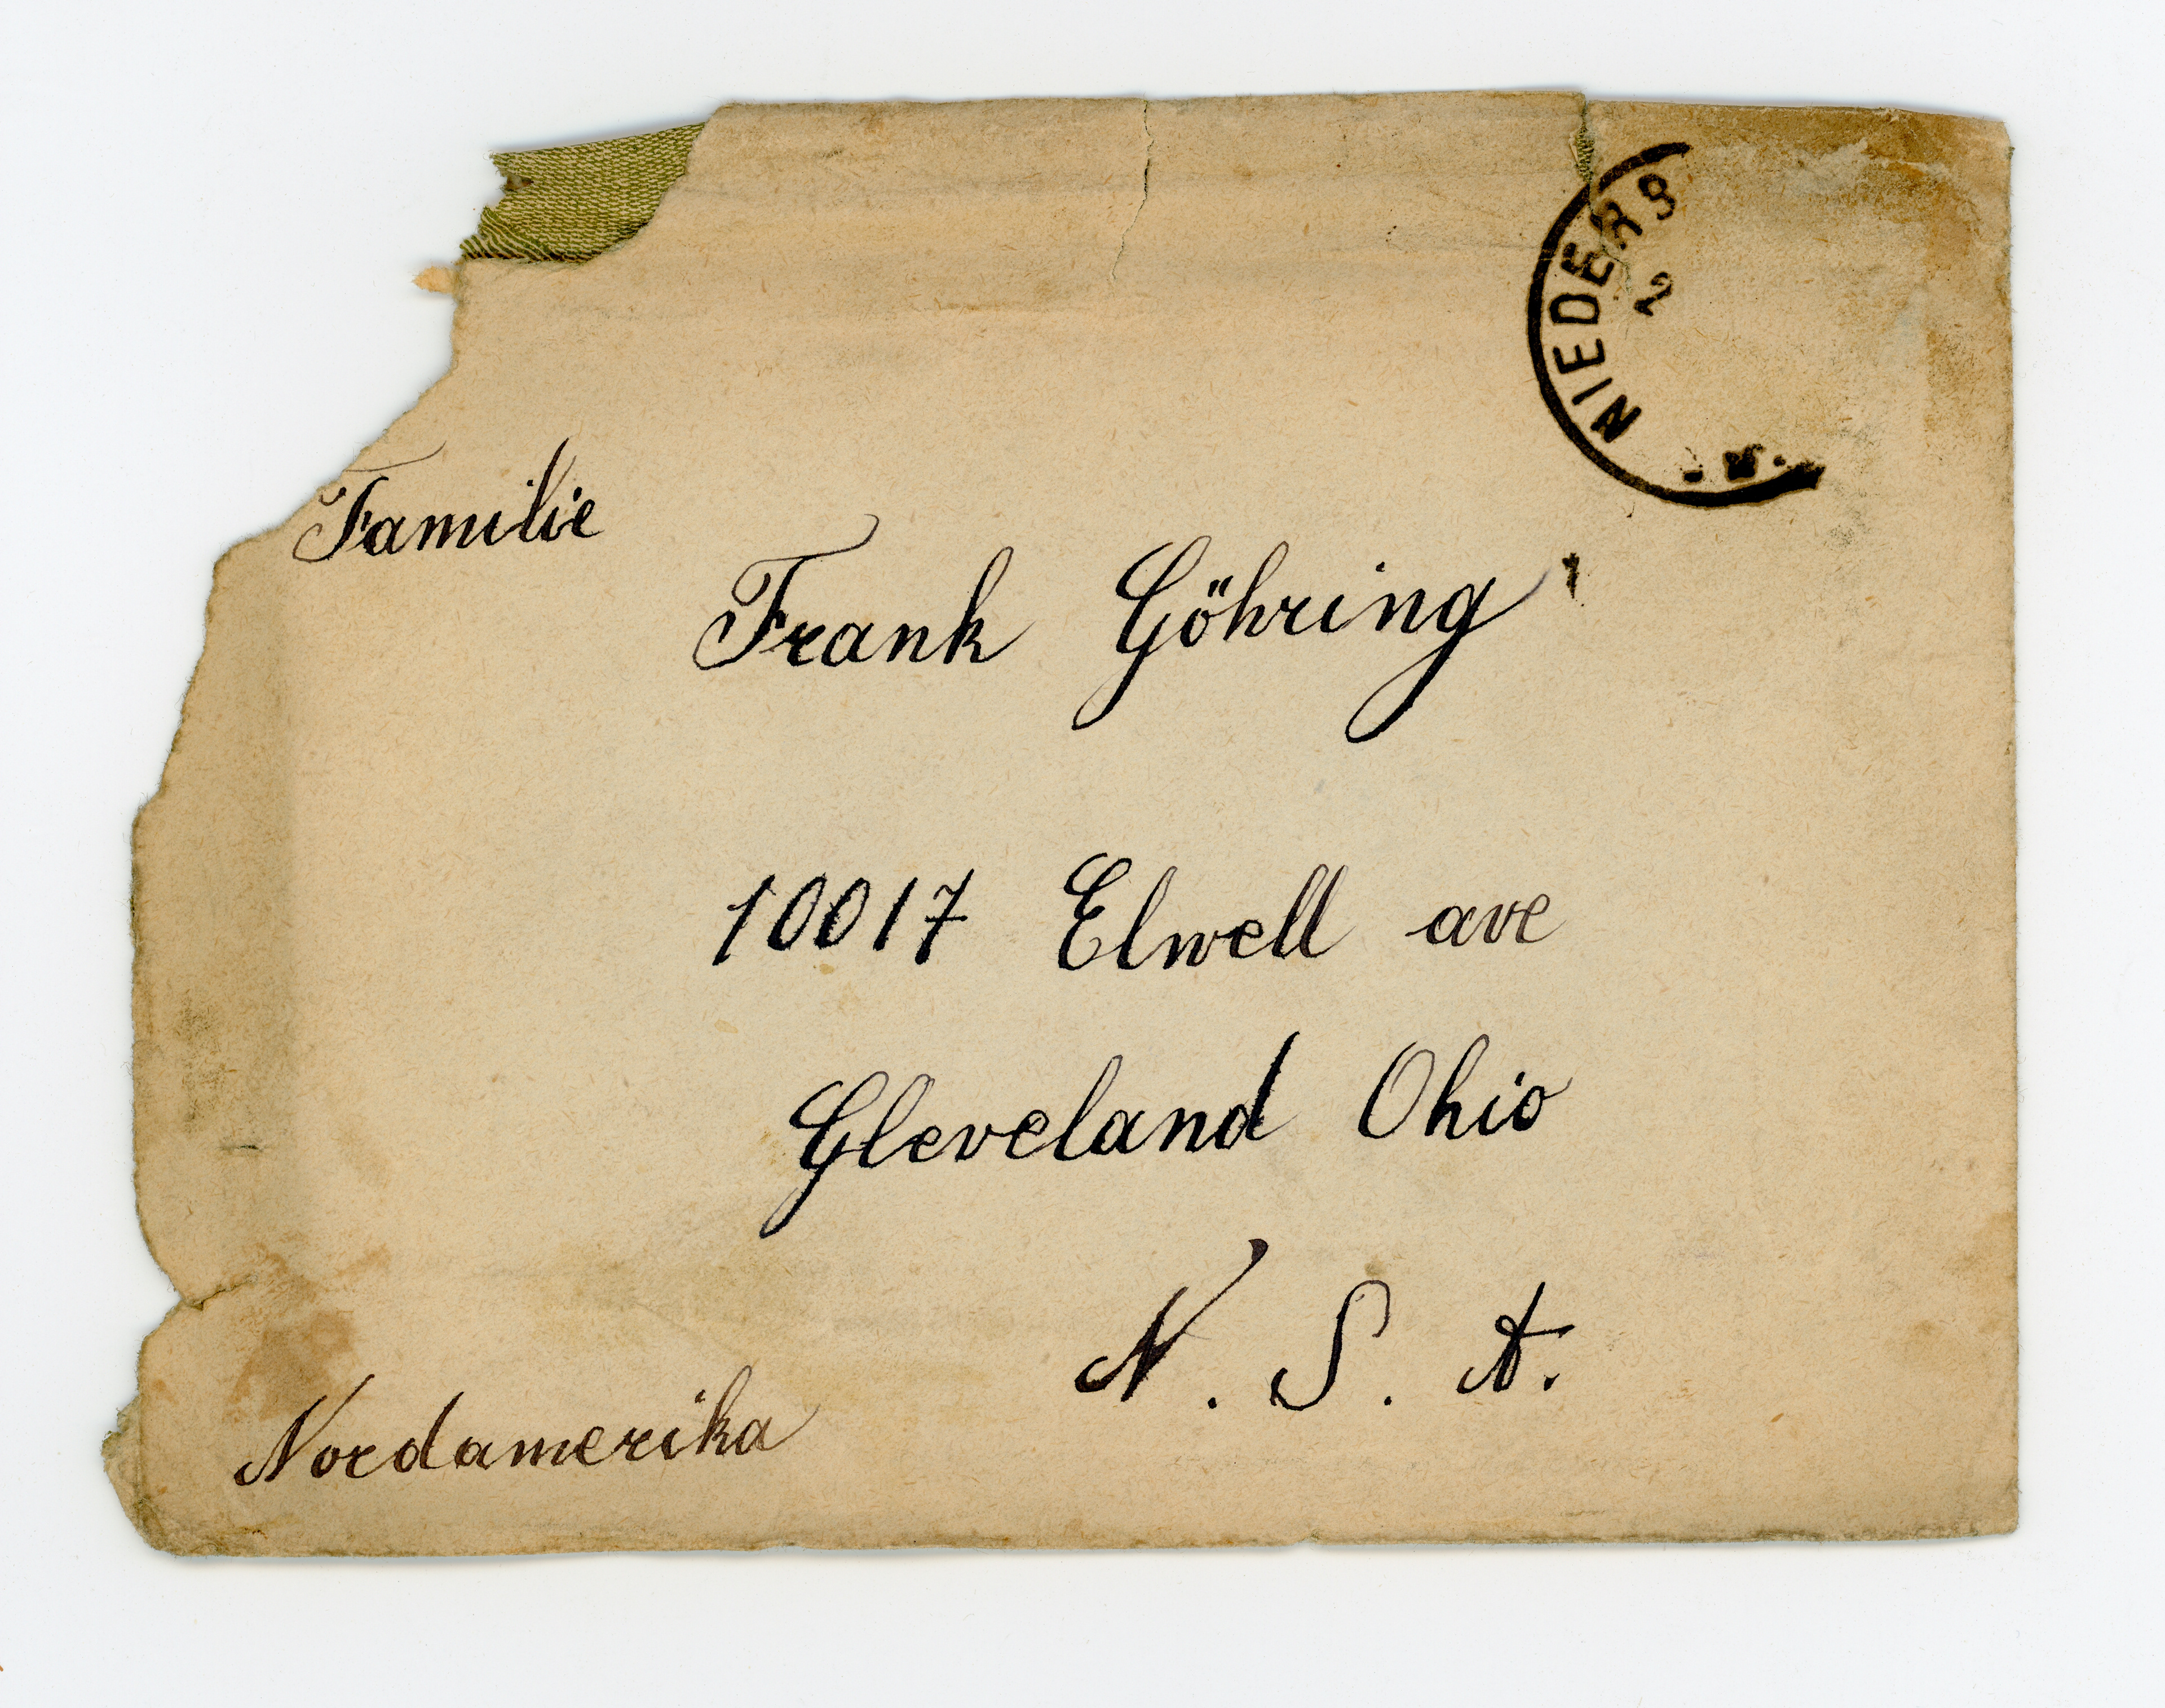 NIEDERS
2
Familie
Frank Göhring
10017 Elwell ave
Gleveland Ohio
N. S. A.
Nordamerika